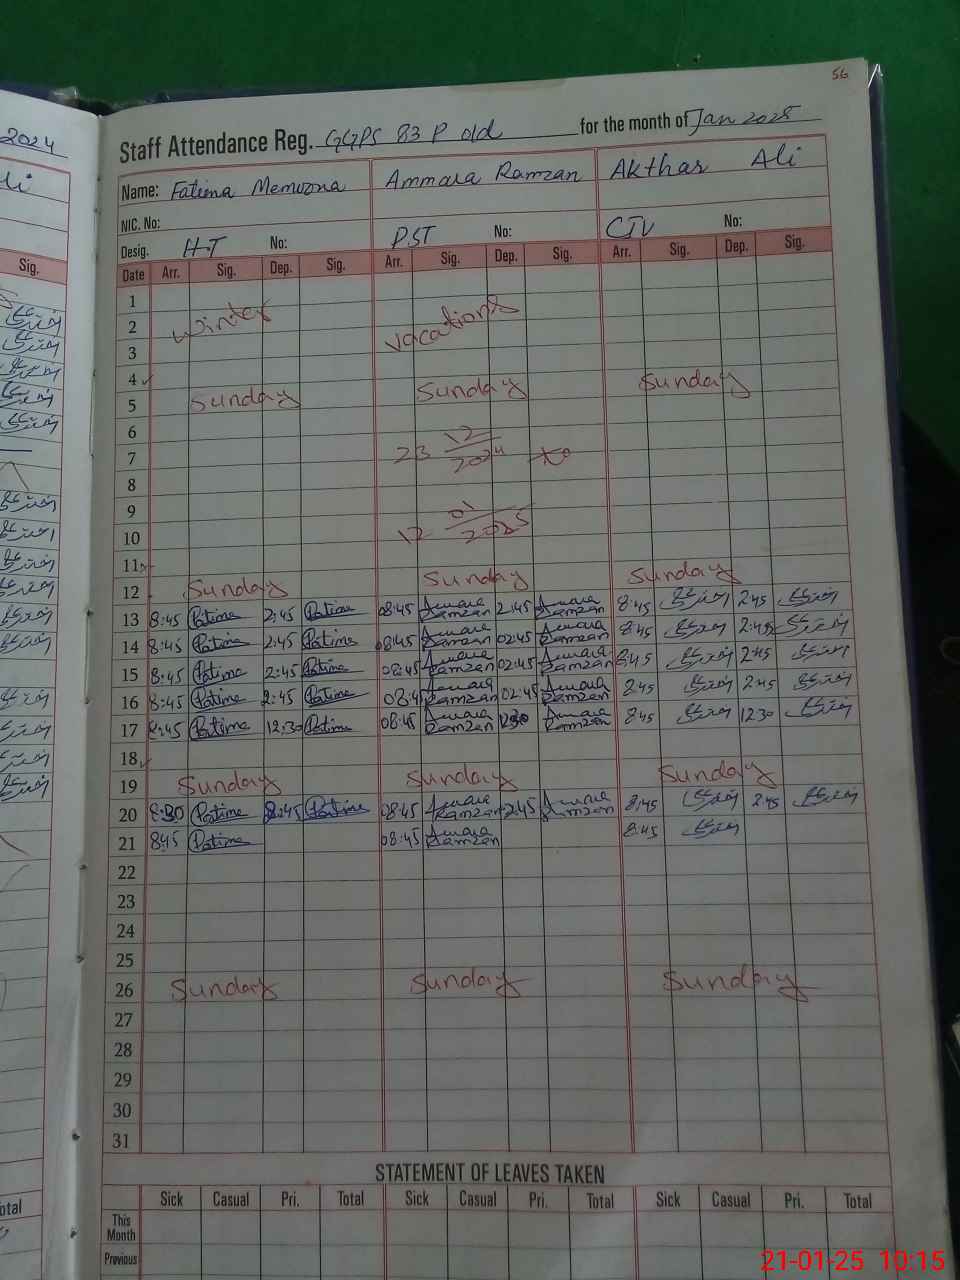 56
2024
Staff Attendance Reg. GGPS 83 P old for the month of Jan 2025
Name: Fatima Memoona Ammara Ramzan Akthar Ali
NIC. No:
Desig. H-T No: PST No: CIV No:
Sig. Date Arr. Sig. Dep. Sig. Arr. Sig. Dep. Sig. Arr. Sig. Dep. Sig.
1
2 winter vacations
3
4
5 Sunday Sunday Sunday
6
7 23 12/2024 to
8
9
10 12 01/2025
11
12 Sunday Sunday Sunday
13 8:45 Fatima 2:45 Fatima 08:45 Ammara Ramzan 2:45 Ammara Ramzan 8:45 اختر علی 2:45 اختر علی
14 8:45 Fatima 2:45 Fatima 08:45 Ammara Ramzan 02:45 Ammara Ramzan 8:45 اختر علی 2:45 اختر علی
15 8:45 Fatima 2:45 Fatima 08:45 Ammara Ramzan 02:45 Ammara Ramzan 8:45 اختر علی 2:45 اختر علی
16 8:45 Fatima 2:45 Fatima 08:45 Ammara Ramzan 02:45 Ammara Ramzan 8:45 اختر علی 2:45 اختر علی
17 8:45 Fatima 12:30 Fatima 08:45 Ammara Ramzan 12:30 Ammara Ramzan 8:45 اختر علی 12:30 اختر علی
18
19 Sunday Sunday Sunday
20 8:30 Fatima 2:45 Fatima 08:45 Ammara Ramzan 2:45 Ammara Ramzan 8:45 اختر علی 2:45 اختر علی
21 8:45 Fatima 08:45 Ammara Ramzan 8:45 اختر علی
22
23
24
25
26 Sunday Sunday Sunday
27
28
29
30
31
STATEMENT OF LEAVES TAKEN
Sick Casual Pri. Total Sick Casual Pri. Total Sick Casual Pri. Total
This Month
Previous
21-01-25 10:15